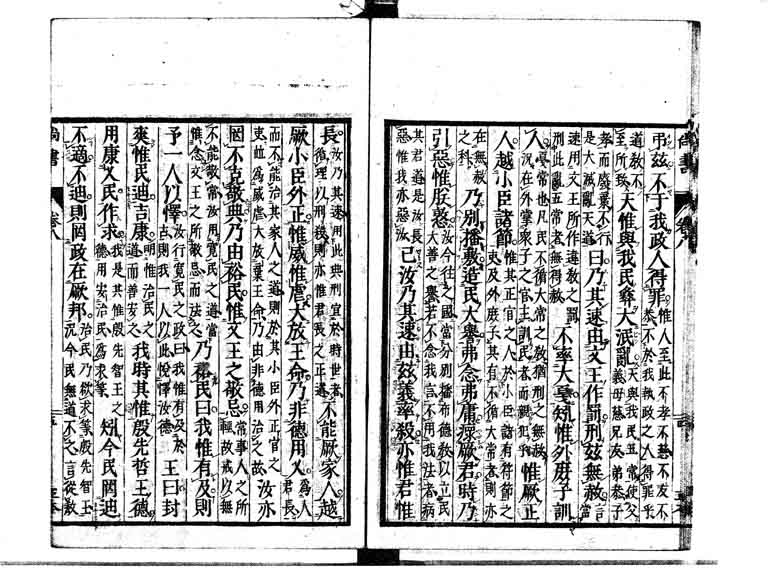 弔茲不于我政人得罪惟人至此不孝不慈不友不恭不於我執政之人得罪乎
道教不至所致天惟與我民彝大泯亂天與我民五常使父義母慈兄友弟恭子
孝而廢棄不行是大滅亂天道曰乃其速由文王作罰刑茲無赦言當
速用文王所作違教之罰刑此亂五常者無得赦不率大戛矧惟外庶子訓
人戛常也凡民不循大常之教猶刑之無赦況在外掌衆子之官主訓民者而親犯乎惟厥正
人越小臣諸節惟其正官之人於小臣諸有符節之吏及外庶子其有不循大常者則亦
在無赦之科乃別播敷造民大譽弗念弗庸瘝厥君時乃
引惡惟朕憝汝今往之國當分別播布德教以立民大善之譽若不念我言不用我法者病
其君道是汝長惡惟我亦惡汝已汝乃其速由茲義率殺亦惟君惟
長汝乃其速用此典刑宜於時世者循理以刑殺則亦惟君長之正道不能厥家人越
厥小臣外正惟威惟虐大放王命乃非德用乂為人君長
而不能治其家人之道則於其小臣外正官之吏並為威虐大放棄王命乃由非德用治之故汝亦
罔不克敬典乃由裕民惟文王之敬忌常事人之所輕故戒以無
不能敬常汝用寬民之道當惟念文王之所敬忌而法之乃裕民曰我惟有及則
予一人以懌汝行寬民之政曰我惟有及於古則我一人以此悅懌汝德王曰封
爽惟民迪吉康明惟治民之道而善安之我時其惟殷先哲王德
用康乂民作求我是其惟殷先智王之德用安治民為求等矧今民罔迪
不適不迪則罔政在厥邦治民乃欲求等殷先智王況今民無道不之言從教
尚書 卷八